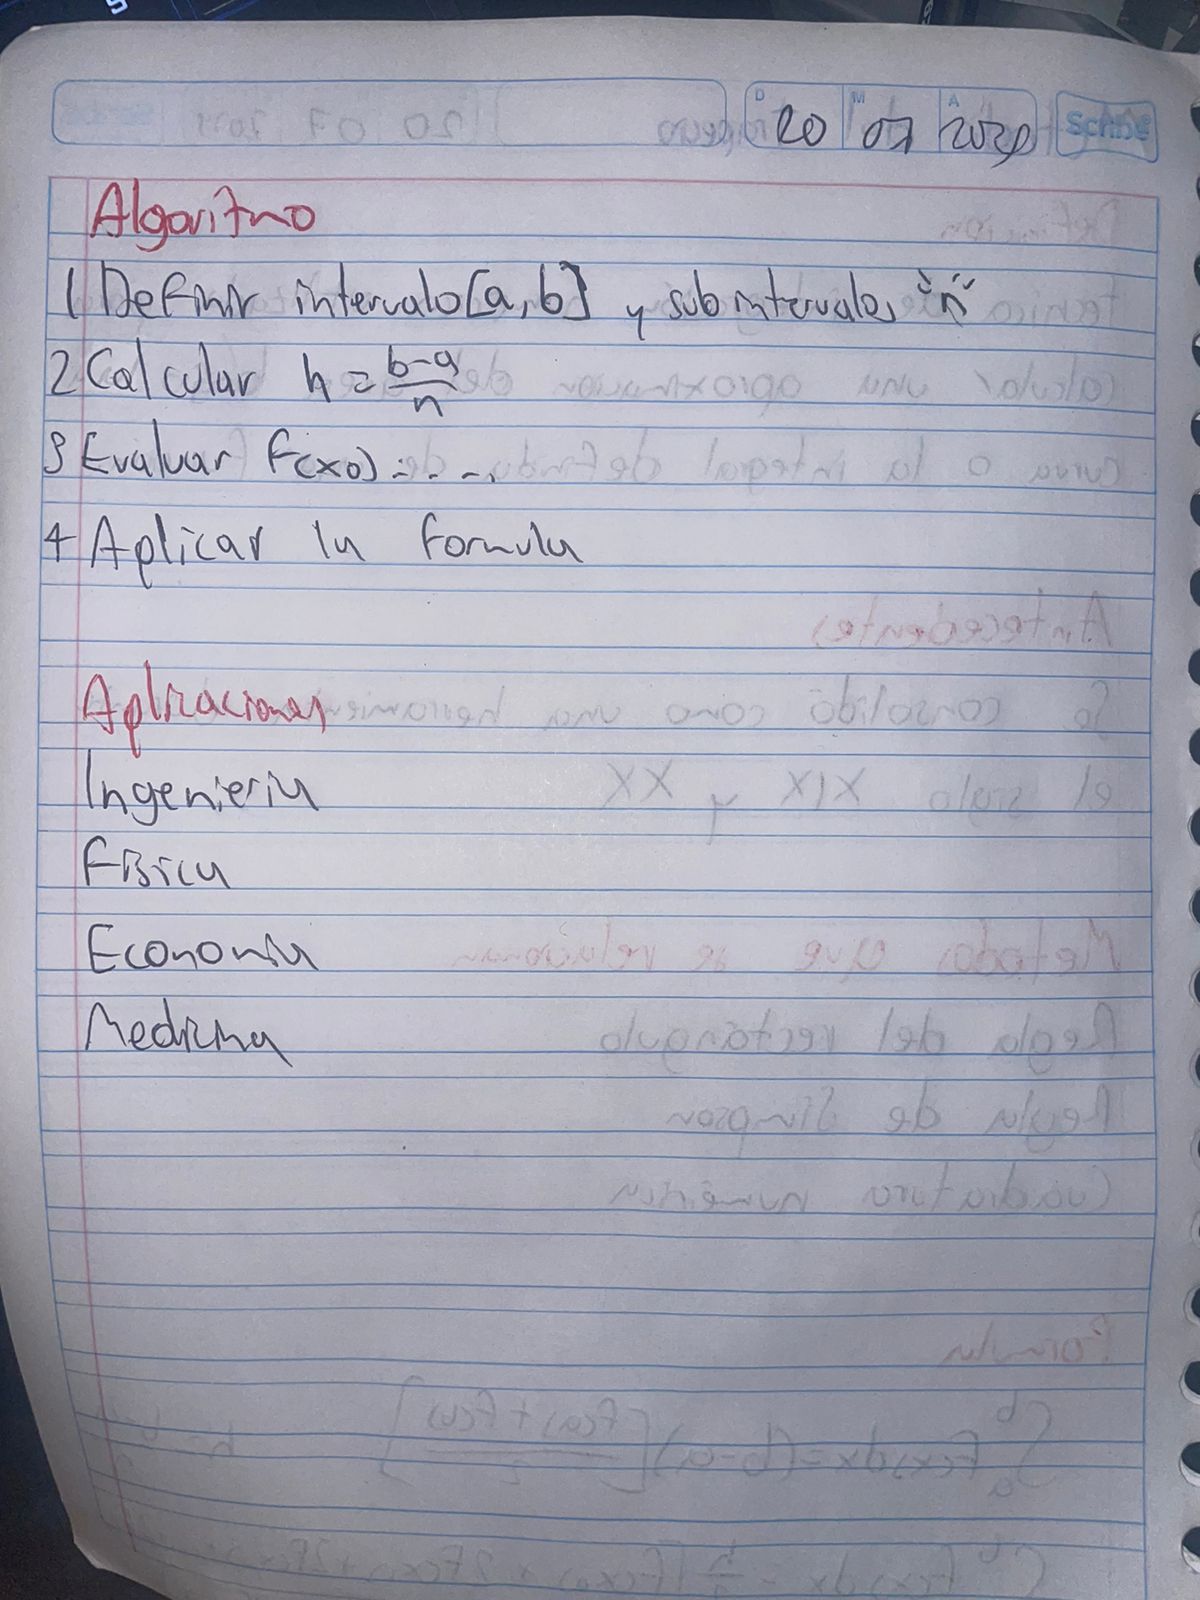 D 20 M 07 A Scribe
Algoritmo
1 Definir intervalo [a,b] y subintervalos "n"
2 Calcular h = \frac{b-a}{n}
3 Evaluar F(x0) - - -.
4 Aplicar la formula
Aplicaciones
Ingenieria
Fisica
Economia
Medicina